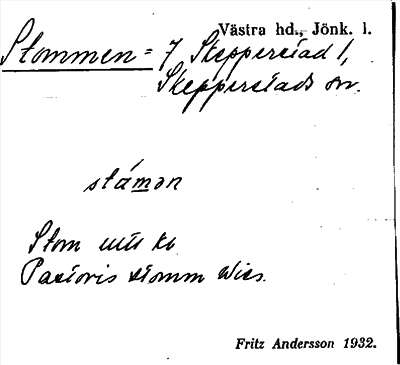 Västra hd., Jönk. l.
Stommen = 7 Skepperstad 1,
Skepperstads sn.
stámən
Stom utü kb
Pastoris stomm Wies.
Fritz Andersson 1932.